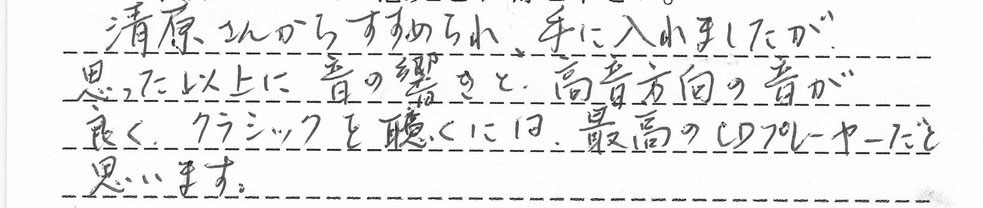 清原さんからすすめられ、手に入れましたが、
思った以上に音の響きと、高音方向の音が
良く、クラシックを聴くには、最高のCDプレーヤーだと
思います。